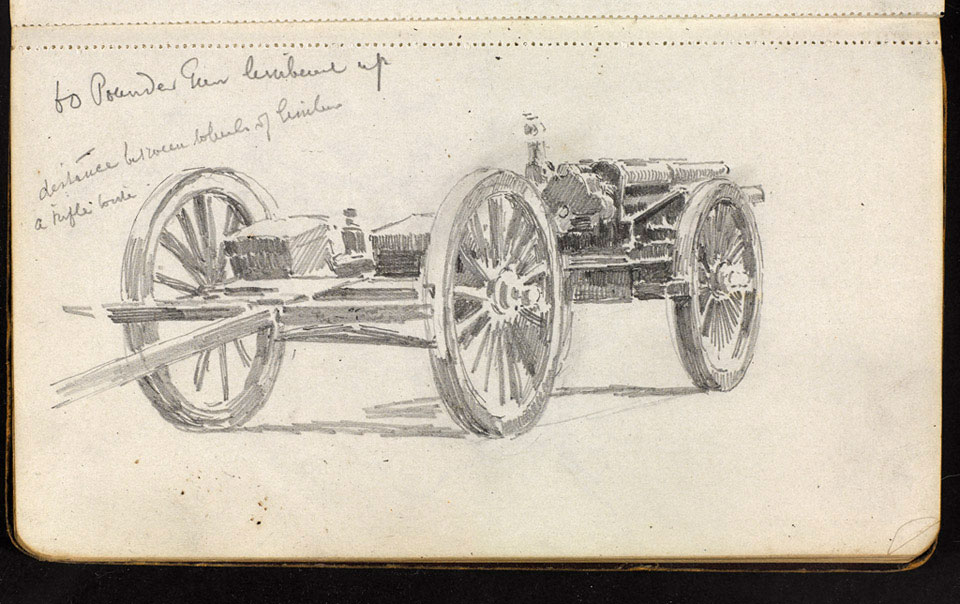 60 Pounder Gun limbered up
distance between wheels of limber
a rifle wide